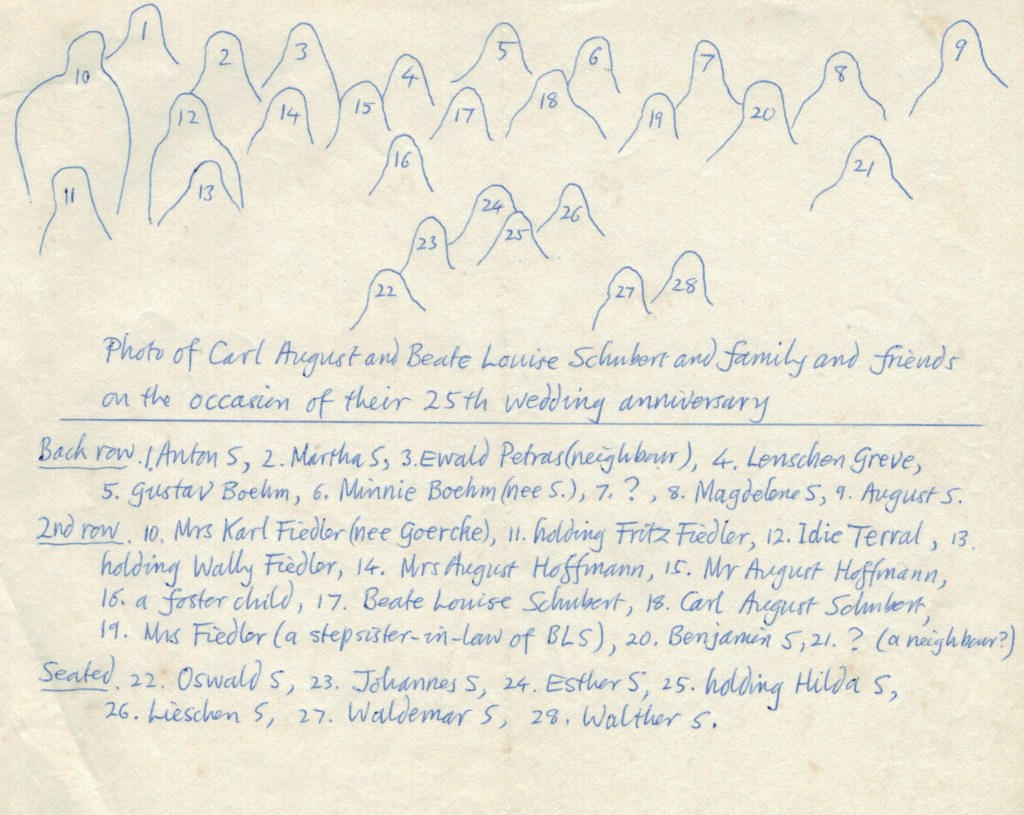 1
2
3
4
5
6
7
8
9
10
11
12
13
14
15
16
17
18
19
20
21
22
23
24
25
26
27
28
Photo of Carl August and Beate Louise Schubert and family and friends
on the occasion of their 25th wedding anniversary
Back row. 1, Anton S, 2. Martha S, 3. Ewald Petras (neighbour), 4. Lenschen Greve,
5. Gustav Boehm, 6. Minnie Boehm (nee S.), 7. ?, 8. Magdelene S, 9. August S.
2nd row. 10. Mrs Karl Fiedler (nee Goercke), 11. holding Fritz Fiedler, 12. Idie Terral, 13.
holding Wally Fiedler, 14. Mrs August Hoffmann, 15. Mr August Hoffmann,
16. a foster child, 17. Beate Louise Schubert, 18. Carl August Schubert,
19. Mrs Fiedler (a stepsister-in-law of BLS), 20. Benjamin S, 21. ? (a neighbour?)
Seated. 22. Oswald S, 23. Johannes S, 24. Esther S, 25. holding Hilda S,
26. Lieschen S, 27. Waldemar S, 28. Walther S.